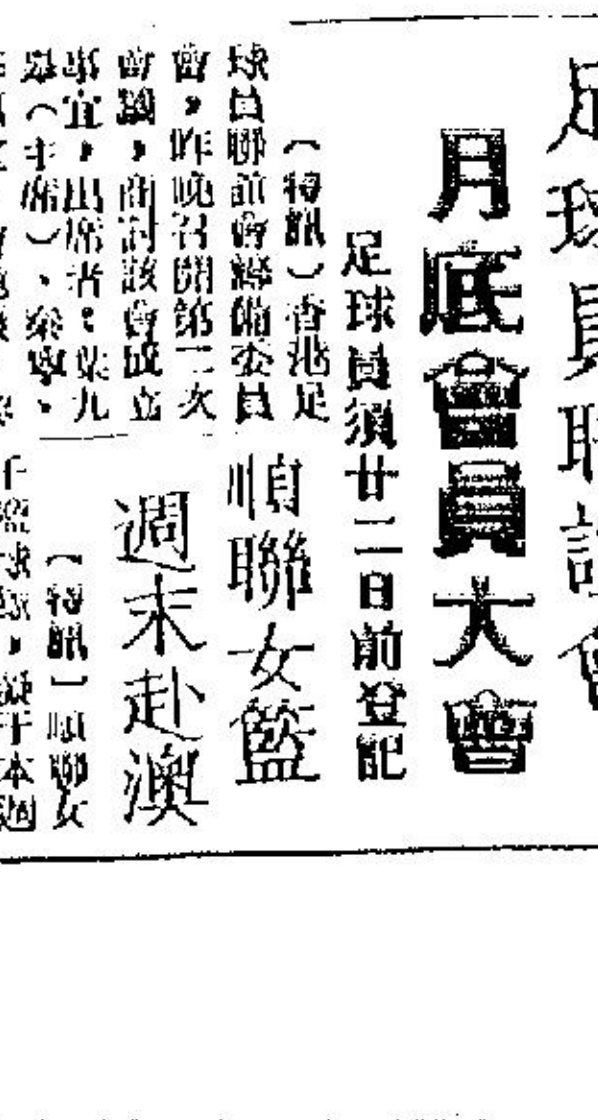 足球員聯誼會
月底會員大會
足球員須廿二日前登記
（特訊）香港足
球員聯誼會籌備委員
會，昨晚召開第二次
會議，商討該會成立
事宜，出席者：葉九
（主席）、
順聯女籃
週末赴澳
（特訊）順聯女
于本週